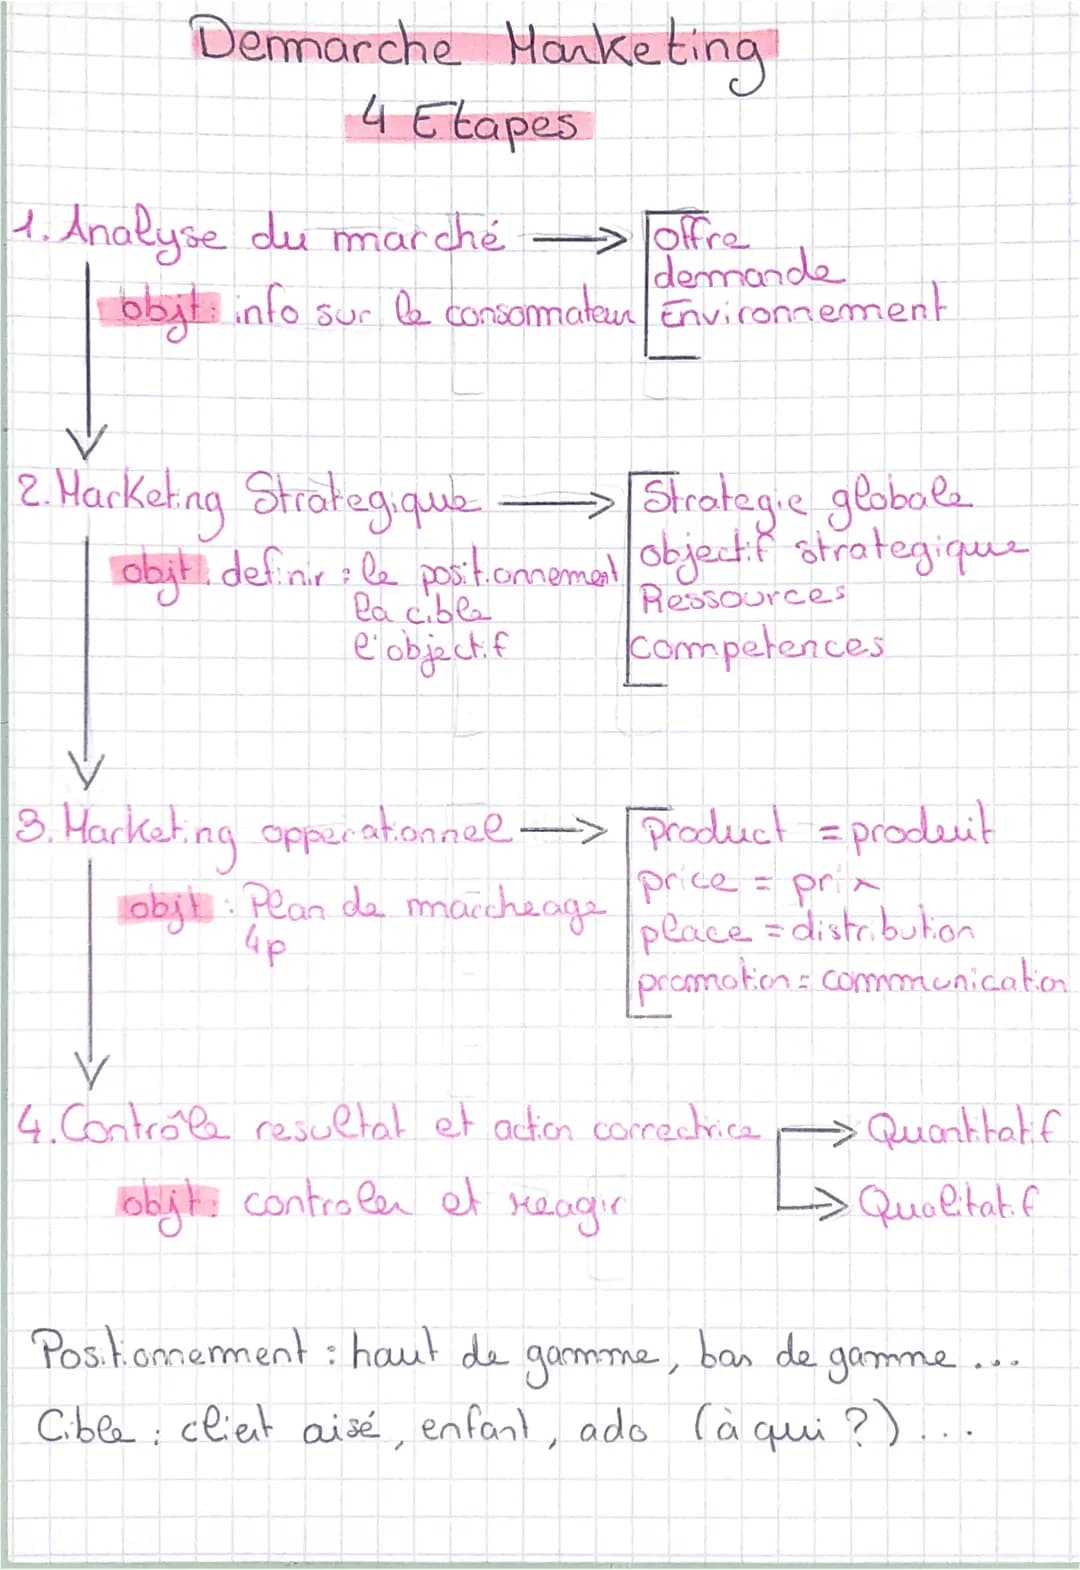 Demarche Marketing
4 Etapes
1. Analyse du marché → offre
demande
objt: info sur le consommateur Environnement
2. Marketing Strategique → Strategie globale
objectif strategique
objt: definir : le positionnement
Ressources
la cible
l'objectif
competences
3. Marketing opperationnel → product = produit
price = prix
objt : Plan de marcheage
place = distribution
4p
promotion = communication
4. Contrôle resultat et action correctrice → Quantitatif
objt: controler et reagir → Qualitatif
Positionnement : haut de gamme, bas de gamme ...
Cible : client aisé, enfant, ado (à qui ?) ...